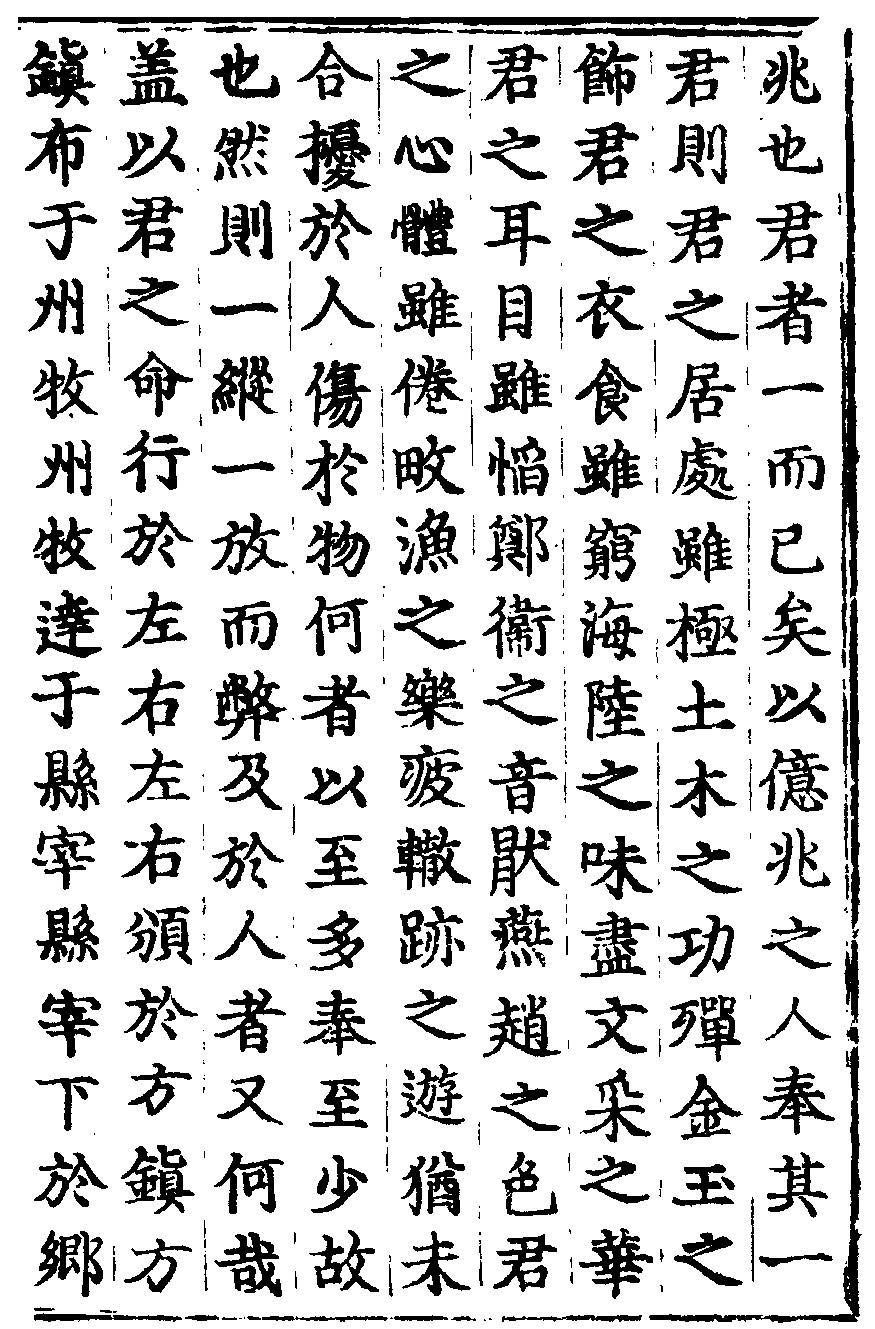 兆也君者一而已矣以億兆之人奉其一
君則君之居處雖極土木之功殫金玉之
飾君之衣食雖窮海陸之味盡文采之華
君之耳目雖慆鄭衞之音猒燕趙之色君
之心體雖倦畋漁之樂疲轍跡之遊猶未
合擾於人傷於物何者以至多奉至少故
也然則一縱一放而弊及於人者又何哉
盖以君之命行於左右左右頒於方鎮方
鎮布于州牧州牧達于縣宰縣宰下於鄉